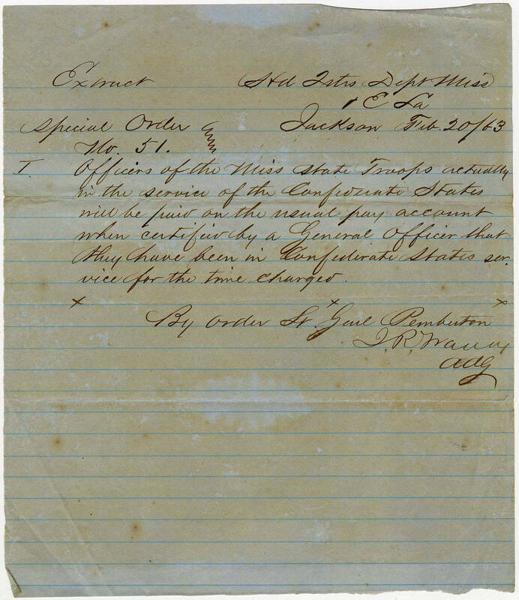 Extract Hd Qtrs Dept Miss
& E La
Special Order Jackson Feb 20/63
No. 51.
I. Officers of the Miss State Troops actually
in the service of the Confederate States
will be paid on the usual pay account
when certified by a General Officer that
they have been in Confederate States ser-
vice for the time charged.
x x x
By order Lt Genl Pemberton
J. R. Waddy
AAG